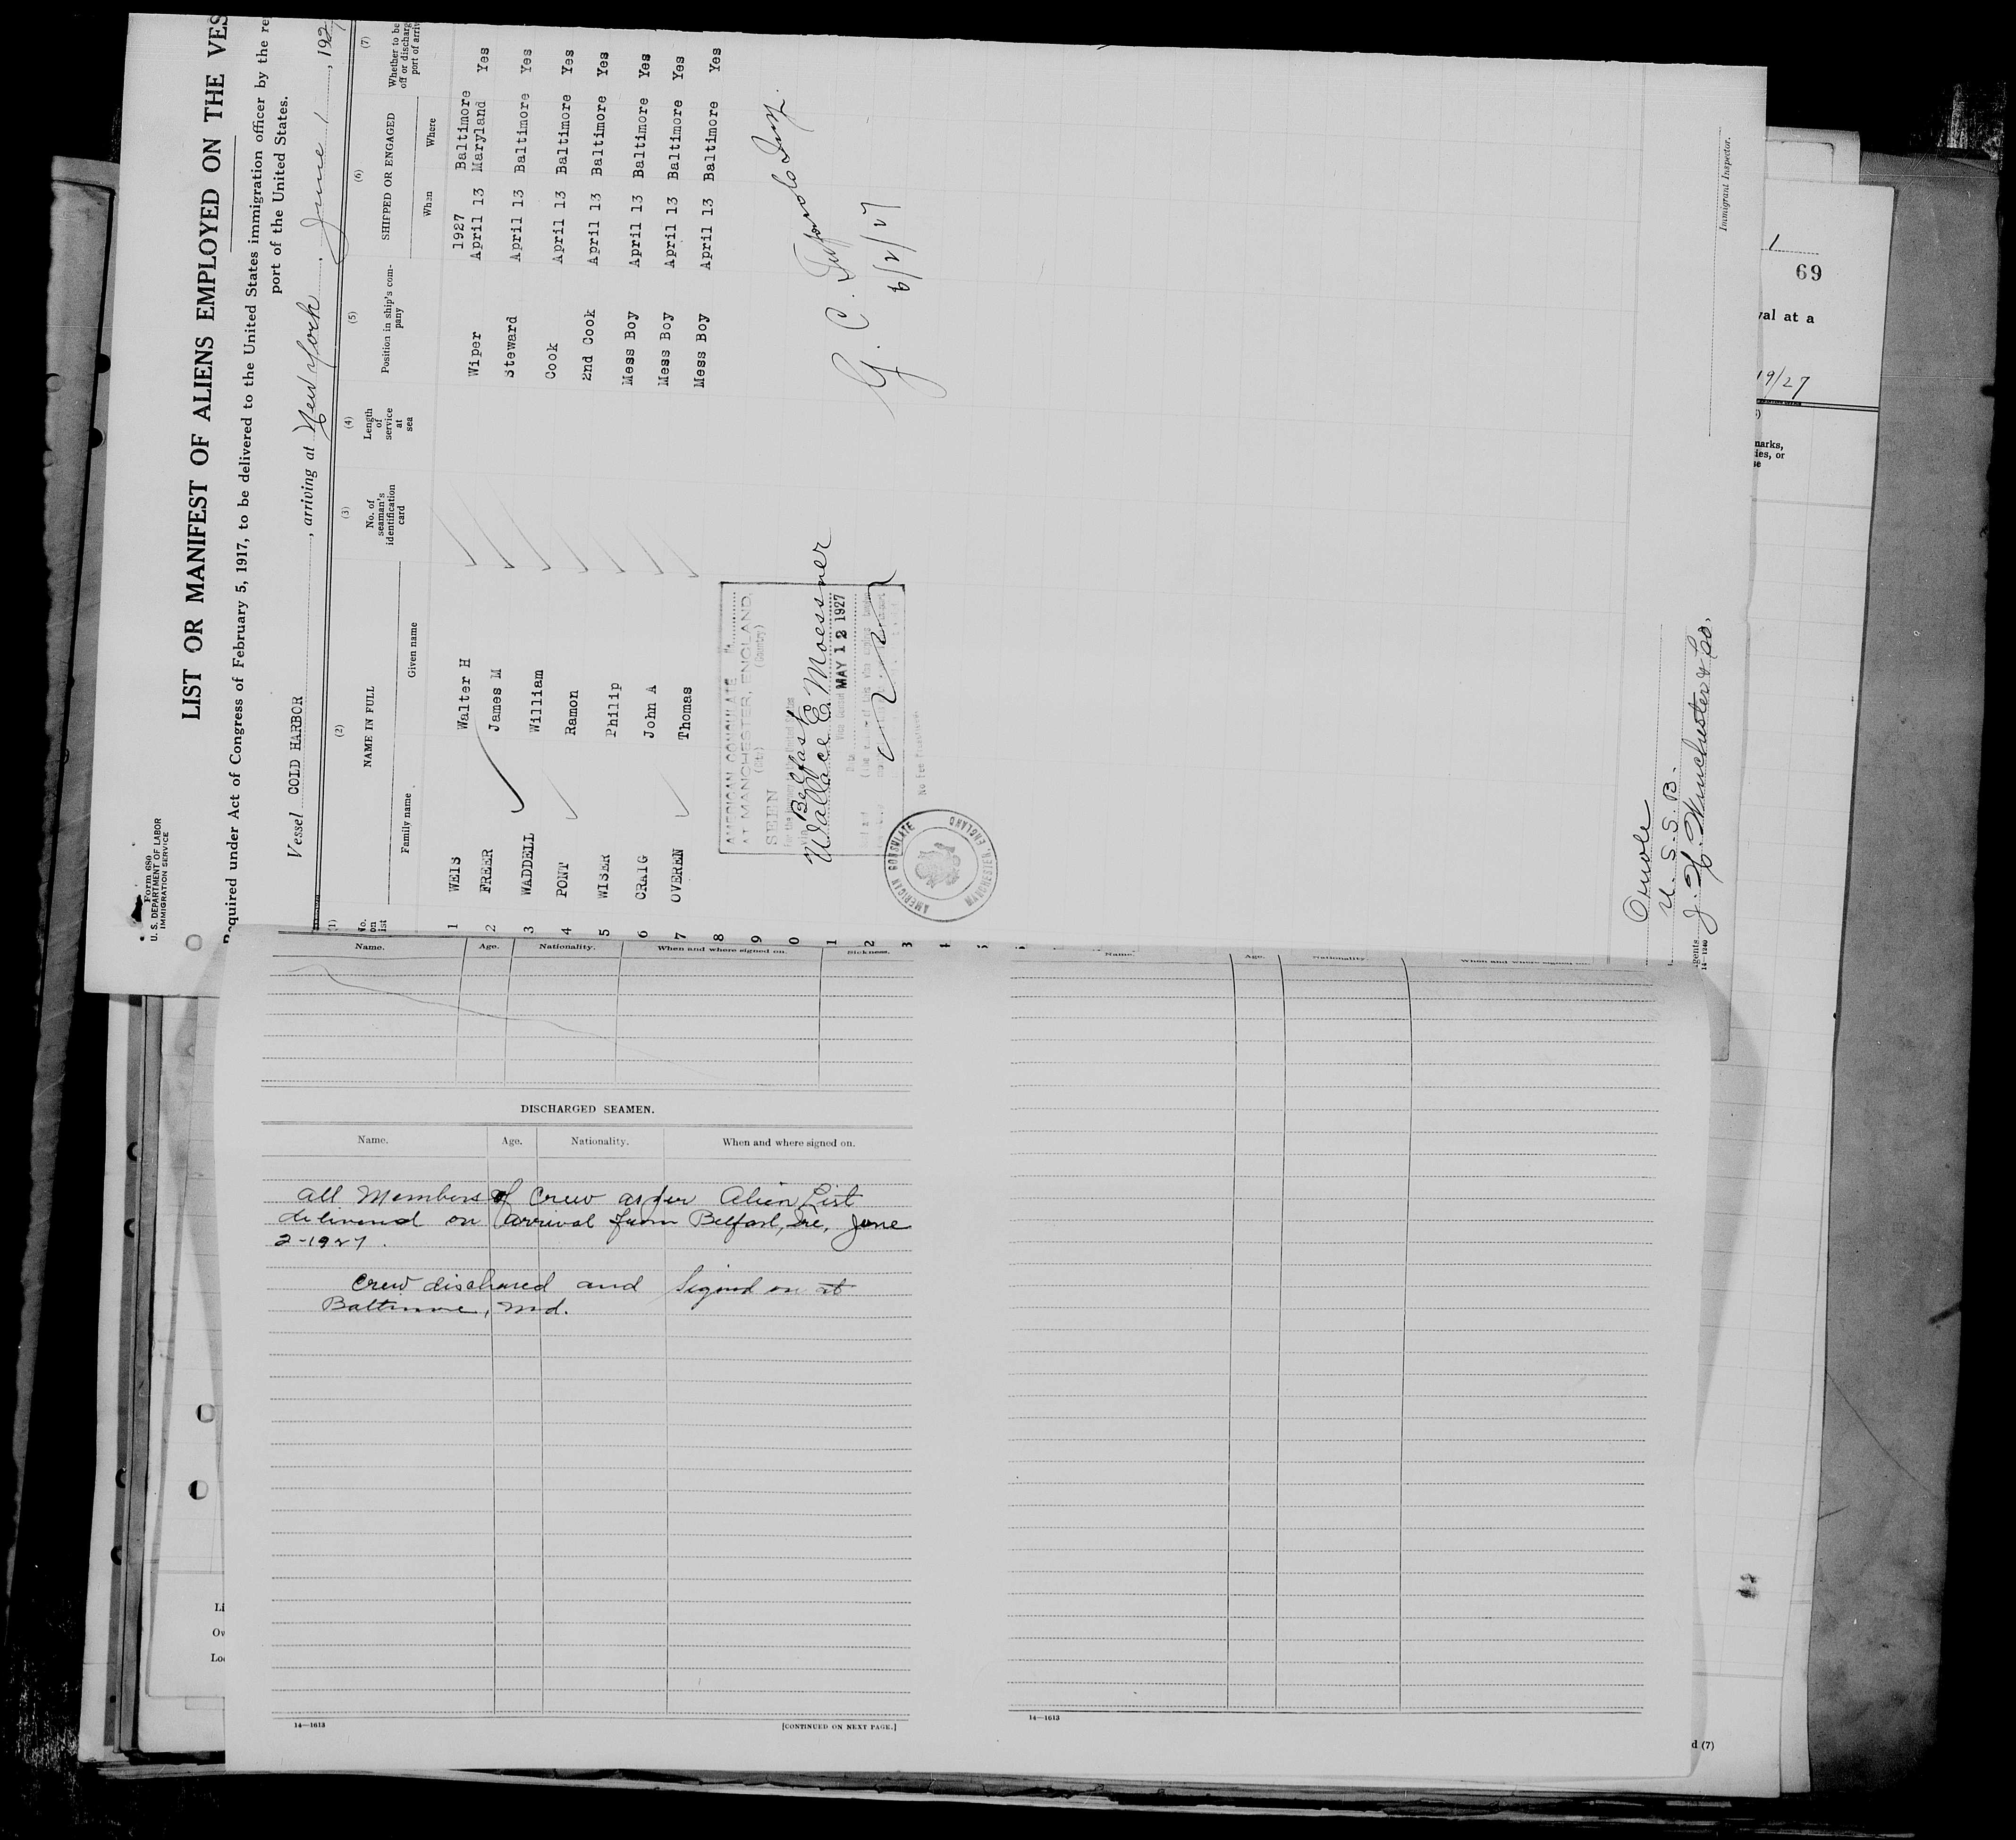 Form 680
U. S. DEPARTMENT OF LABOR
IMMIGRATION SERVICE
LIST OR MANIFEST OF ALIENS EMPLOYED ON THE VES
Required under Act of Congress of February 5, 1917, to be delivered to the United States immigration officer by the re
port of the United States.
Vessel COLD HARBOR, arriving at New York, June 1, 1927
(1) (2) (3) (4) (5) (6) (7)
No. on list NAME IN FULL No. of seaman's identification card Length of service at sea Position in ship's company SHIPPED OR ENGAGED Whether to be off or discharg port of arriv
Family name Given name When Where
1927 Baltimore
1 WEIS Walter H Wiper April 13 Maryland Yes
2 FREER James M Steward April 13 Baltimore Yes
3 WADDELL William Cook April 13 Baltimore Yes
4 PONT Ramon 2nd Cook April 13 Baltimore Yes
5 WISER Philip Mess Boy April 13 Baltimore Yes
6 CRAIG John A Mess Boy April 13 Baltimore Yes
7 OVEREN Thomas Mess Boy April 13 Baltimore Yes
8
9
0
1
2
3
4
AMERICAN CONSULATE
AT MANCHESTER, ENGLAND.
(City) (Country)
SEEN
For the journey to the United States
Via Belfast
Wallace E. Moessner
Vice Consul
Date MAY 12 1927
No Fee Prescribed.
AMERICAN CONSULATE
MANCHESTER, ENGLAND
G. C.
6/2/27
U. S. S. B.
J. H. Winchester & Co.
gents
14—1240
Immigrant Inspector.
1
69
val at a
19/27
marks,
ies, or
se
Name. Age. Nationality. When and where signed on. Sickness.
DISCHARGED SEAMEN.
Name. Age. Nationality. When and where signed on.
all Members of Crew as per Alien List
delivered on arrival from Belfast, Ire, June
2-1927.
Crew discharged and signed on at
Baltimore, Md.
14—1613 [CONTINUED ON NEXT PAGE.]
Name. Age. Nationality. When and where signed on.
14—1613
Li
Ow
Loc
d (7)